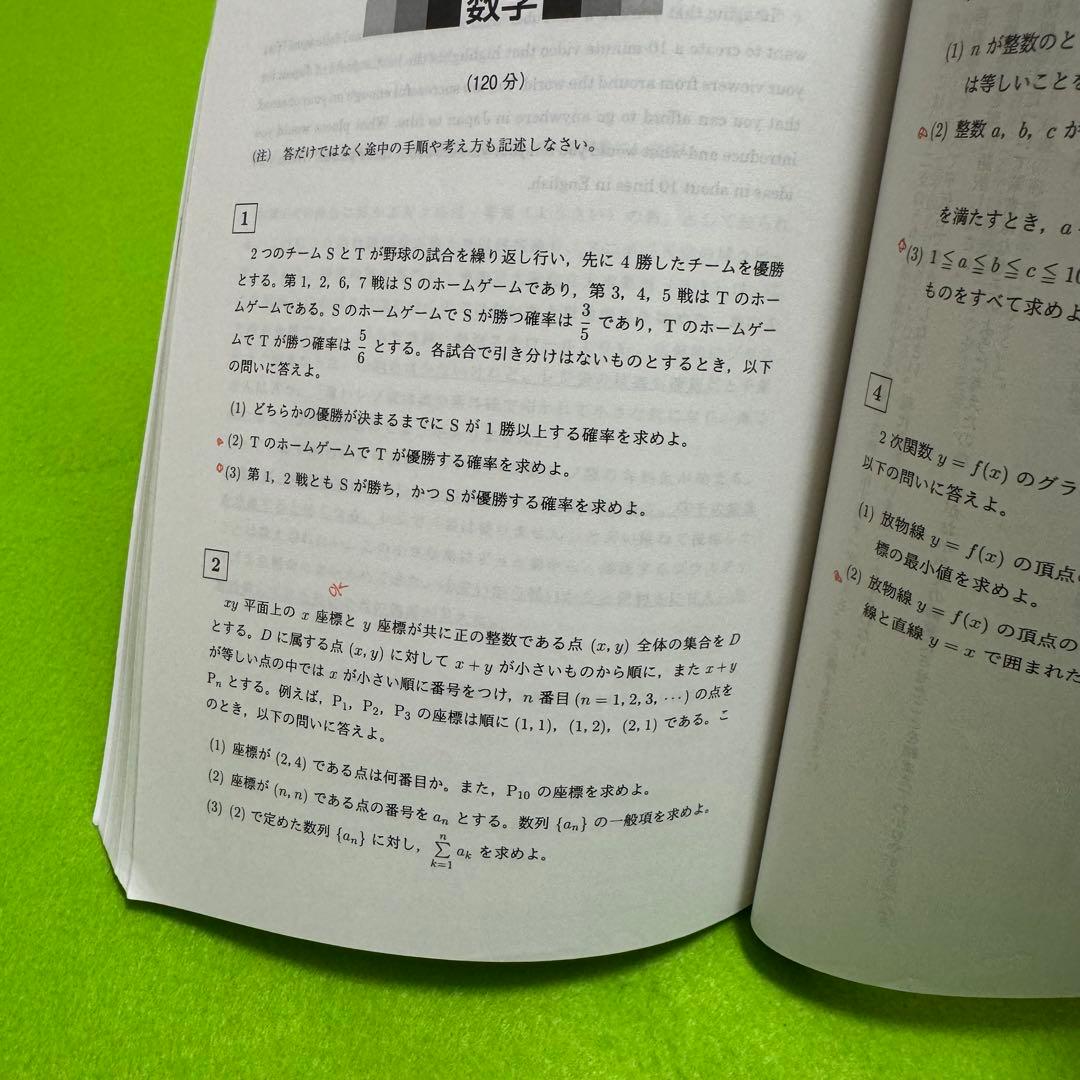 数学
(120 分)
(注) 答だけではなく途中の手順や考え方も記述しなさい。
1
2つのチーム S と T が野球の試合を繰り返し行い，先に 4 勝したチームを優勝
とする。第 1, 2, 6, 7 戦は S のホームゲームであり，第 3, 4, 5 戦は T のホー
ムゲームである。S のホームゲームで S が勝つ確率は 3/5 であり，T のホームゲー
ムで T が勝つ確率は 5/6 とする。各試合で引き分けはないものとするとき，以下
の問いに答えよ。
(1) どちらかの優勝が決まるまでに S が 1 勝以上する確率を求めよ。
(2) T のホームゲームで T が優勝する確率を求めよ。
(3) 第 1, 2 戦とも S が勝ち，かつ S が優勝する確率を求めよ。
2
OK
xy 平面上の x 座標と y 座標が共に正の整数である点 (x, y) 全体の集合を D
とする。D に属する点 (x, y) に対して x+y が小さいものから順に，また x+y
が等しい点の中では x が小さい順に番号をつけ，n 番目 (n = 1, 2, 3, ⋯) の点を
Pn とする。例えば，P1, P2, P3 の座標は順に (1, 1), (1, 2), (2, 1) である。こ
のとき，以下の問いに答えよ。
(1) 座標が (2, 4) である点は何番目か。また，P10 の座標を求めよ。
(2) 座標が (n, n) である点の番号を an とする。数列 {an} の一般項を求めよ。
(3) (2) で定めた数列 {an} に対し，∑_{k=1}^{n} ak を求めよ。
(1) n が整数のと
は等しいことを
(2) 整数 a, b, c が
を満たすとき，a
(3) 1≦a≦b≦c≦10
ものをすべて求めよ
4
2 次関数 y = f(x) のグラ
以下の問いに答えよ。
(1) 放物線 y = f(x) の頂点
標の最小値を求めよ。
(2) 放物線 y = f(x) の頂点の
線と直線 y = x で囲まれた